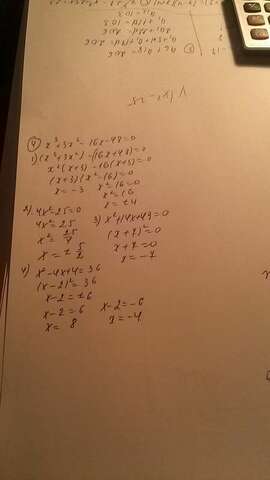 ④ x³+3x²-16x-48=0
1) (x³+3x²)-(16x+48)=0
x²(x+3)-16(x+3)=0
(x+3)(x²-16)=0
x=-3 x²-16=0
x²=16
x=±4
2) 4x²-25=0
4x²=25
x²=25/4
x=±5/2
3) x²+14x+49=0
(x+7)²=0
x+7=0
x=-7
4) x²-4x+4=36
(x-2)²=36
x-2=±6
x-2=6 x-2=-6
x=8 x=-4